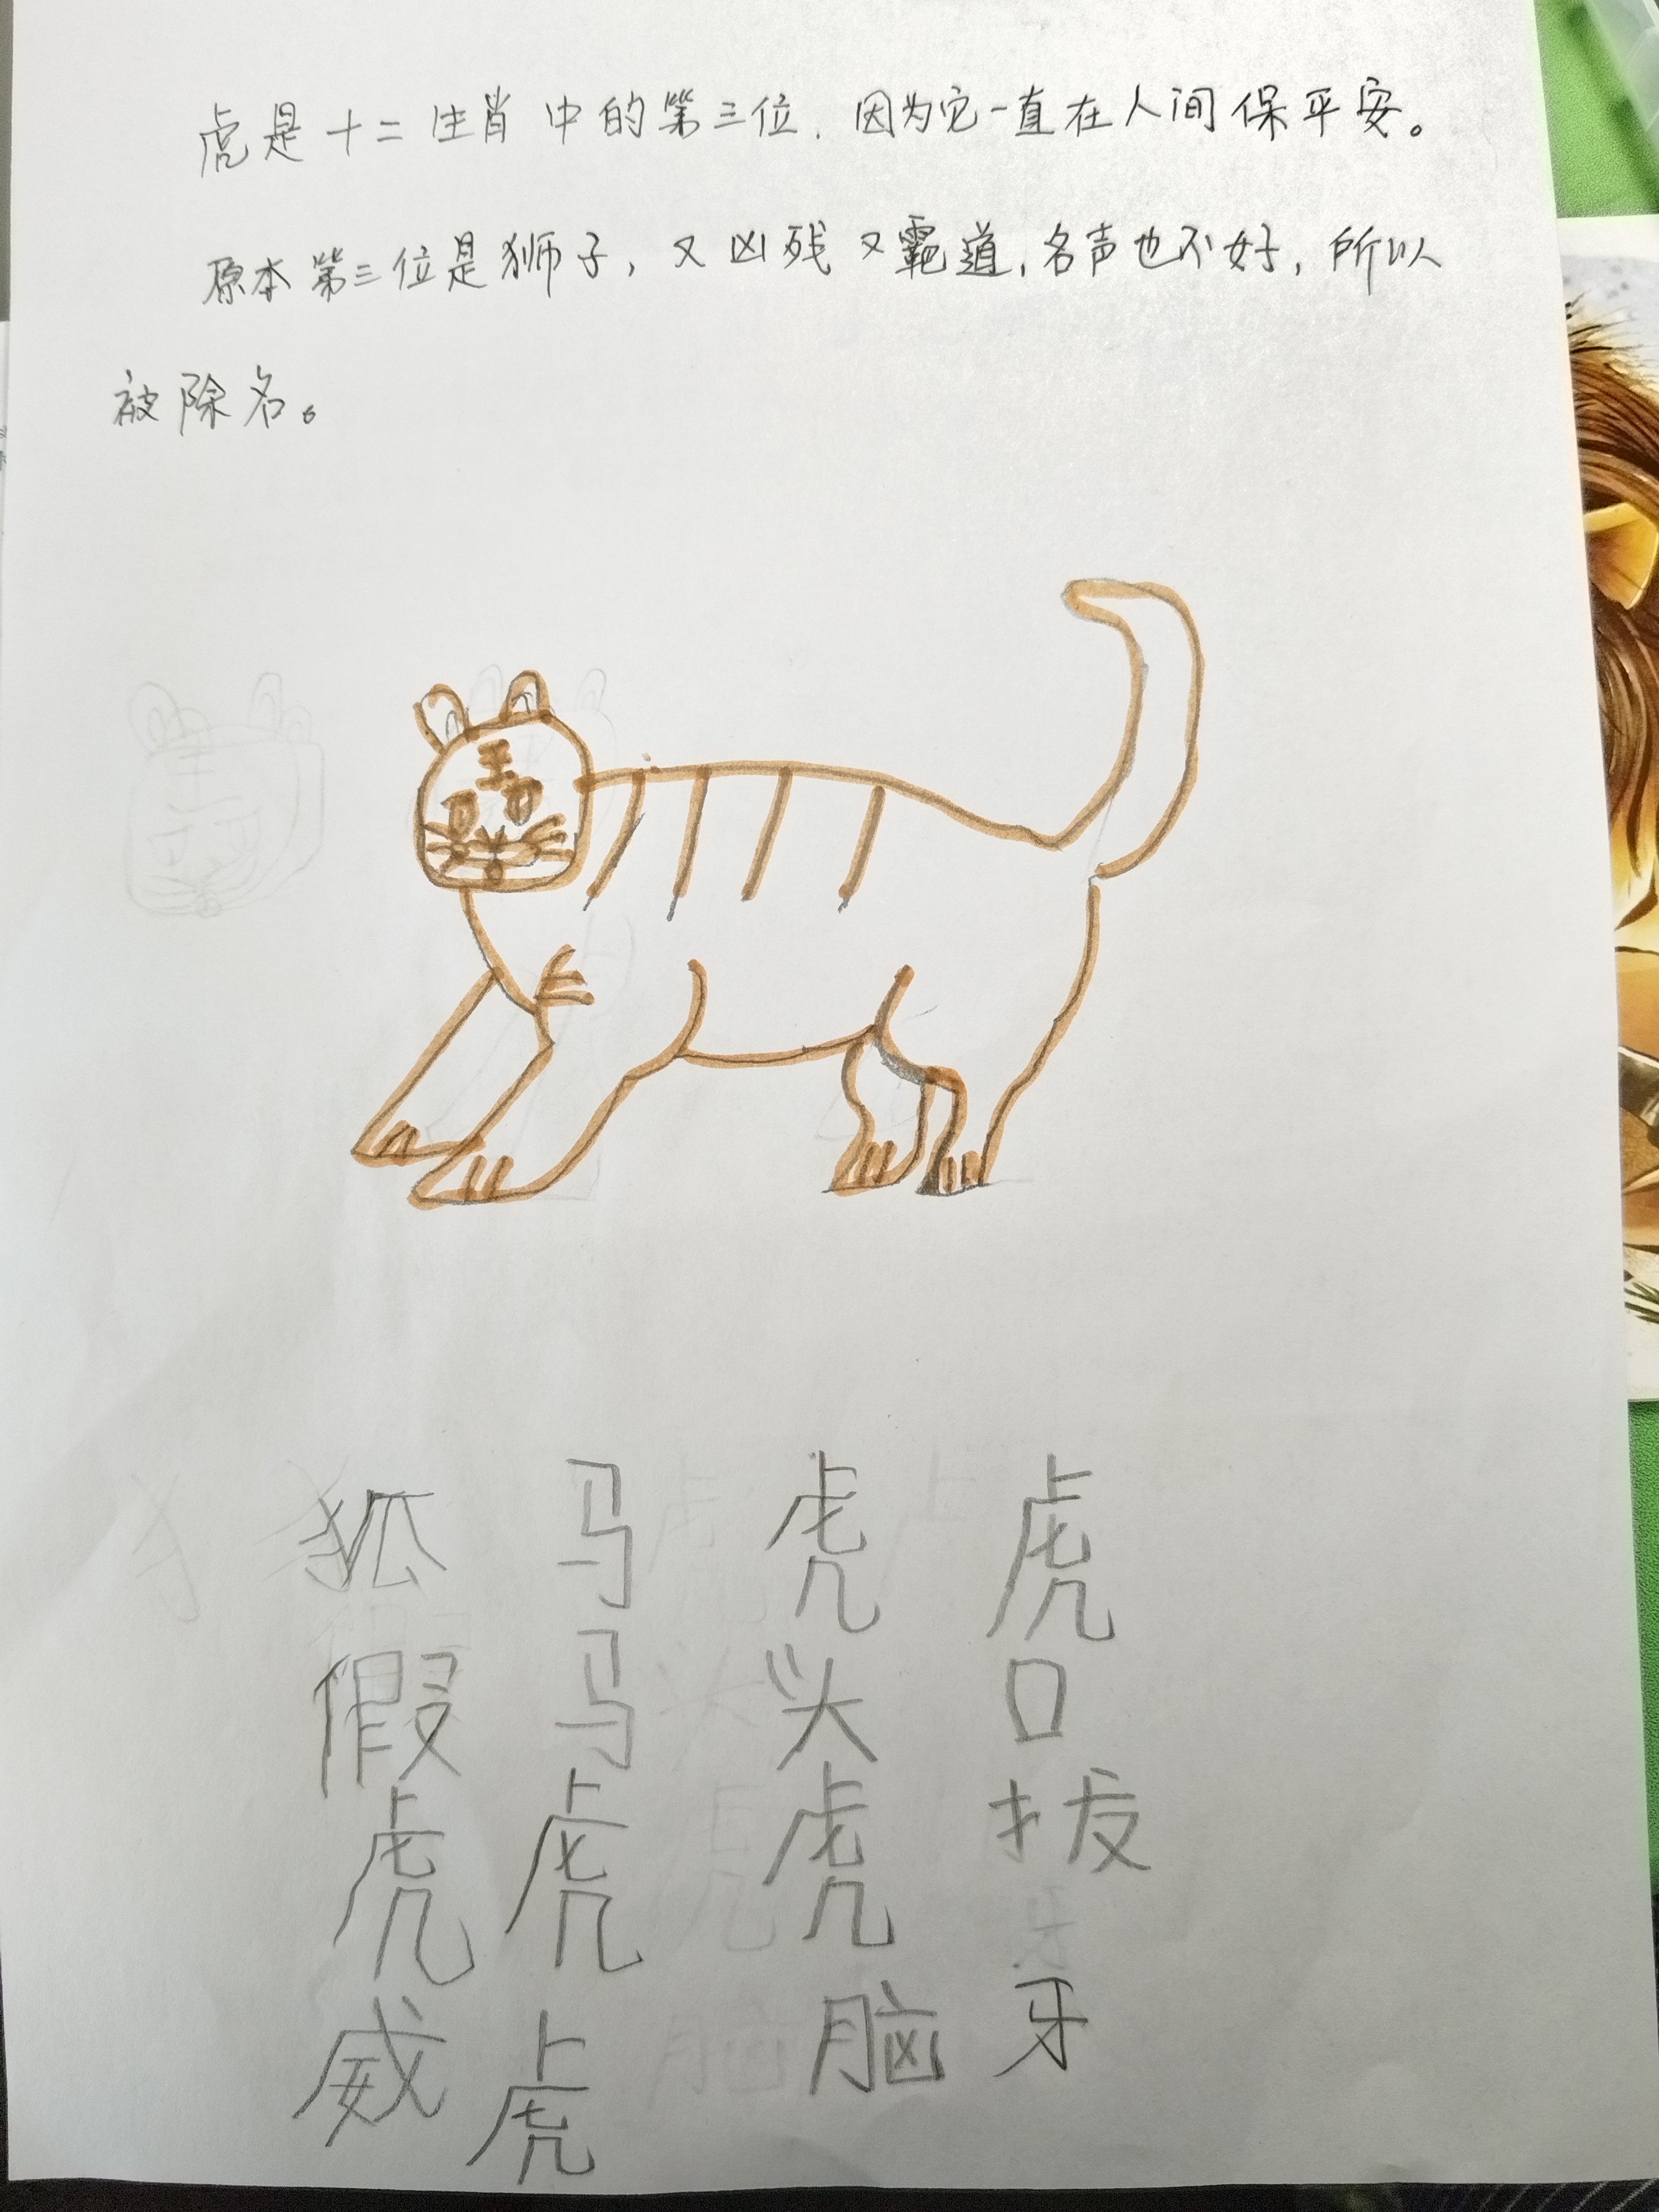 虎是十二生肖中的第三位，因为它一直在人间保平安。
原本第三位是狮子，又凶残又霸道，名声也不好，所以
被除名。
王
狐假虎威
马马虎虎
虎头虎脑
虎口拔牙